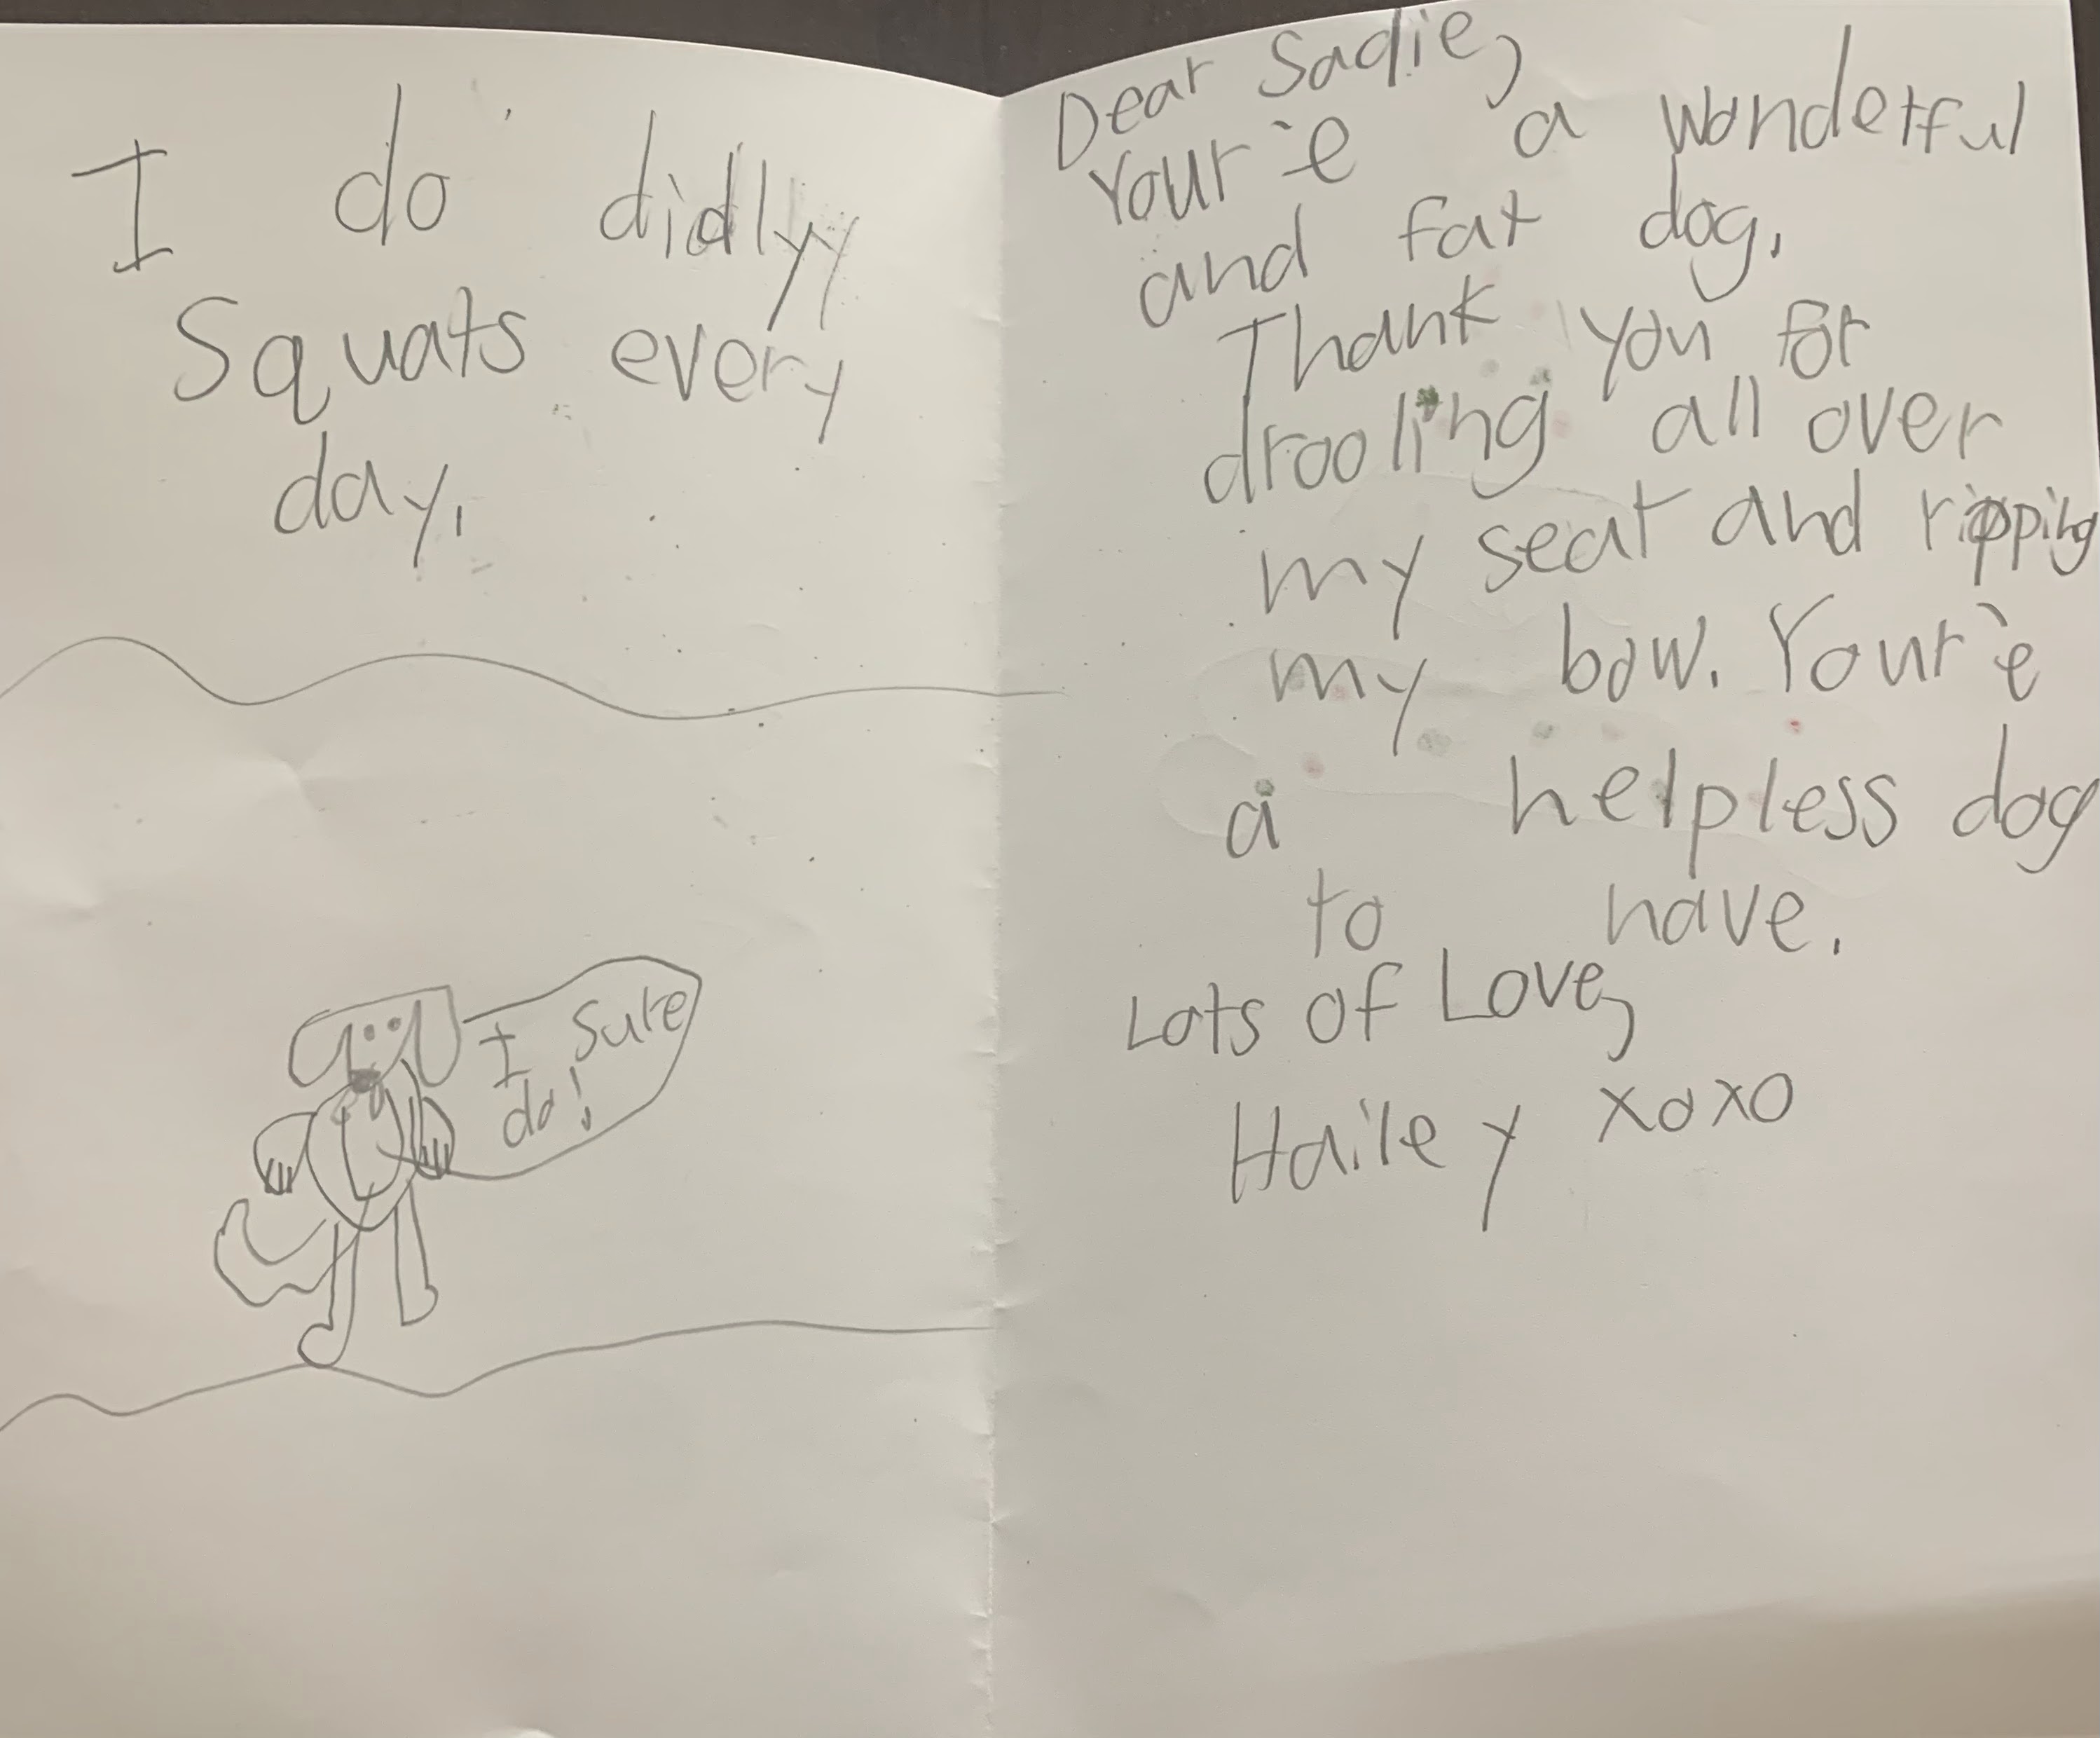 I do didlyy
Squats every
day.
I sure
do!
Dear Sadie,
Your'e a wonderful
and fat dog.
Thank you for
drooling all over
my seat and ripping
my bow. Your'e
a helpless dog
to have.
Lots of Love,
Hailey xoxo